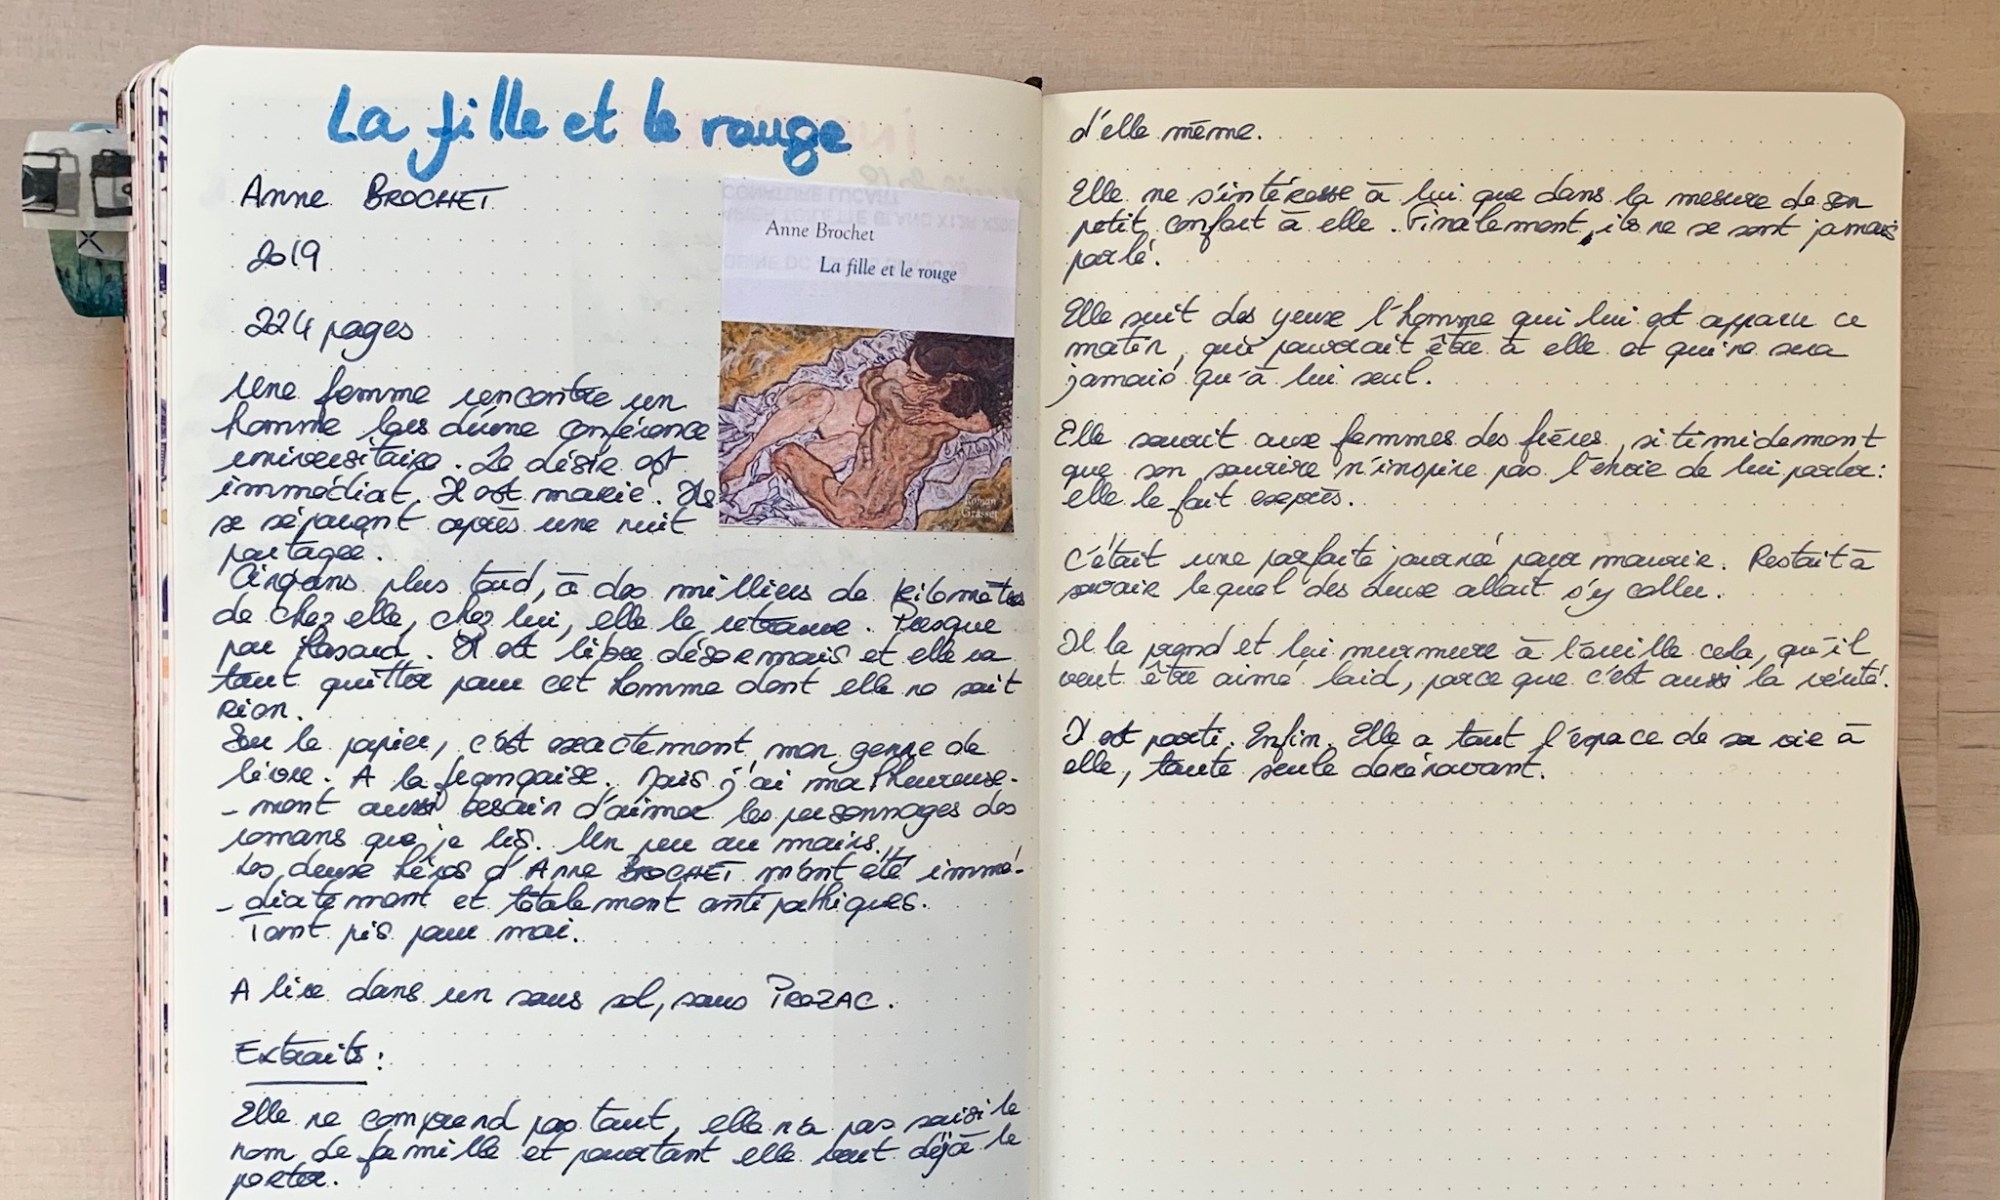 La fille et le rouge
Anne BROCHET
2019
224 pages
Anne Brochet
La fille et le rouge
Roman
Grasset
Une femme rencontre un
homme lors d'une conférence
universitaire. Le désir est
immédiat. Il est marié. Ils
se séparent après une nuit
partagée.
Cinq ans plus tard, à des milliers de kilomètres
de chez elle, chez lui, elle le retrouve. Presque
par hasard. Il est libre désormais et elle va
tout quitter pour cet homme dont elle ne sait
rien.
Sur le papier, c'est exactement mon genre de
livre. A la française. Mais j'ai malheureuse-
-ment aussi besoin d'aimer les personnages des
romans que je lis. Un peu au moins.
Les deux héros d'Anne BROCHET m'ont été immé-
-diatement et totalement antipathiques.
Tant pis pour moi.
A lire dans un sous sol, sous PROZAC.
Extraits :
Elle ne comprend pas tout, elle n'a pas saisi le
nom de famille et pourtant elle veut déjà le
porter.
d'elle même.
Elle ne s'intéresse à lui que dans la mesure de son
petit confort à elle. Finalement, ils ne se sont jamais
parlé.
Elle suit des yeux l'homme qui lui est apparu ce
matin, qui pourrait être à elle et qui ne sera
jamais qu'à lui seul.
Elle sourit aux femmes des frères, si timidement
que son sourire n'inspire pas l'envie de lui parler :
elle le fait exprès.
C'était une parfaite journée pour mourir. Restait à
savoir lequel des deux allait s'y coller.
Il la prend et lui murmure à l'oreille cela, qu'il
veut être aimé laid, parce que c'est aussi la vérité.
Il est parti. Enfin. Elle a tout l'espace de sa vie à
elle, toute seule dorénavant.